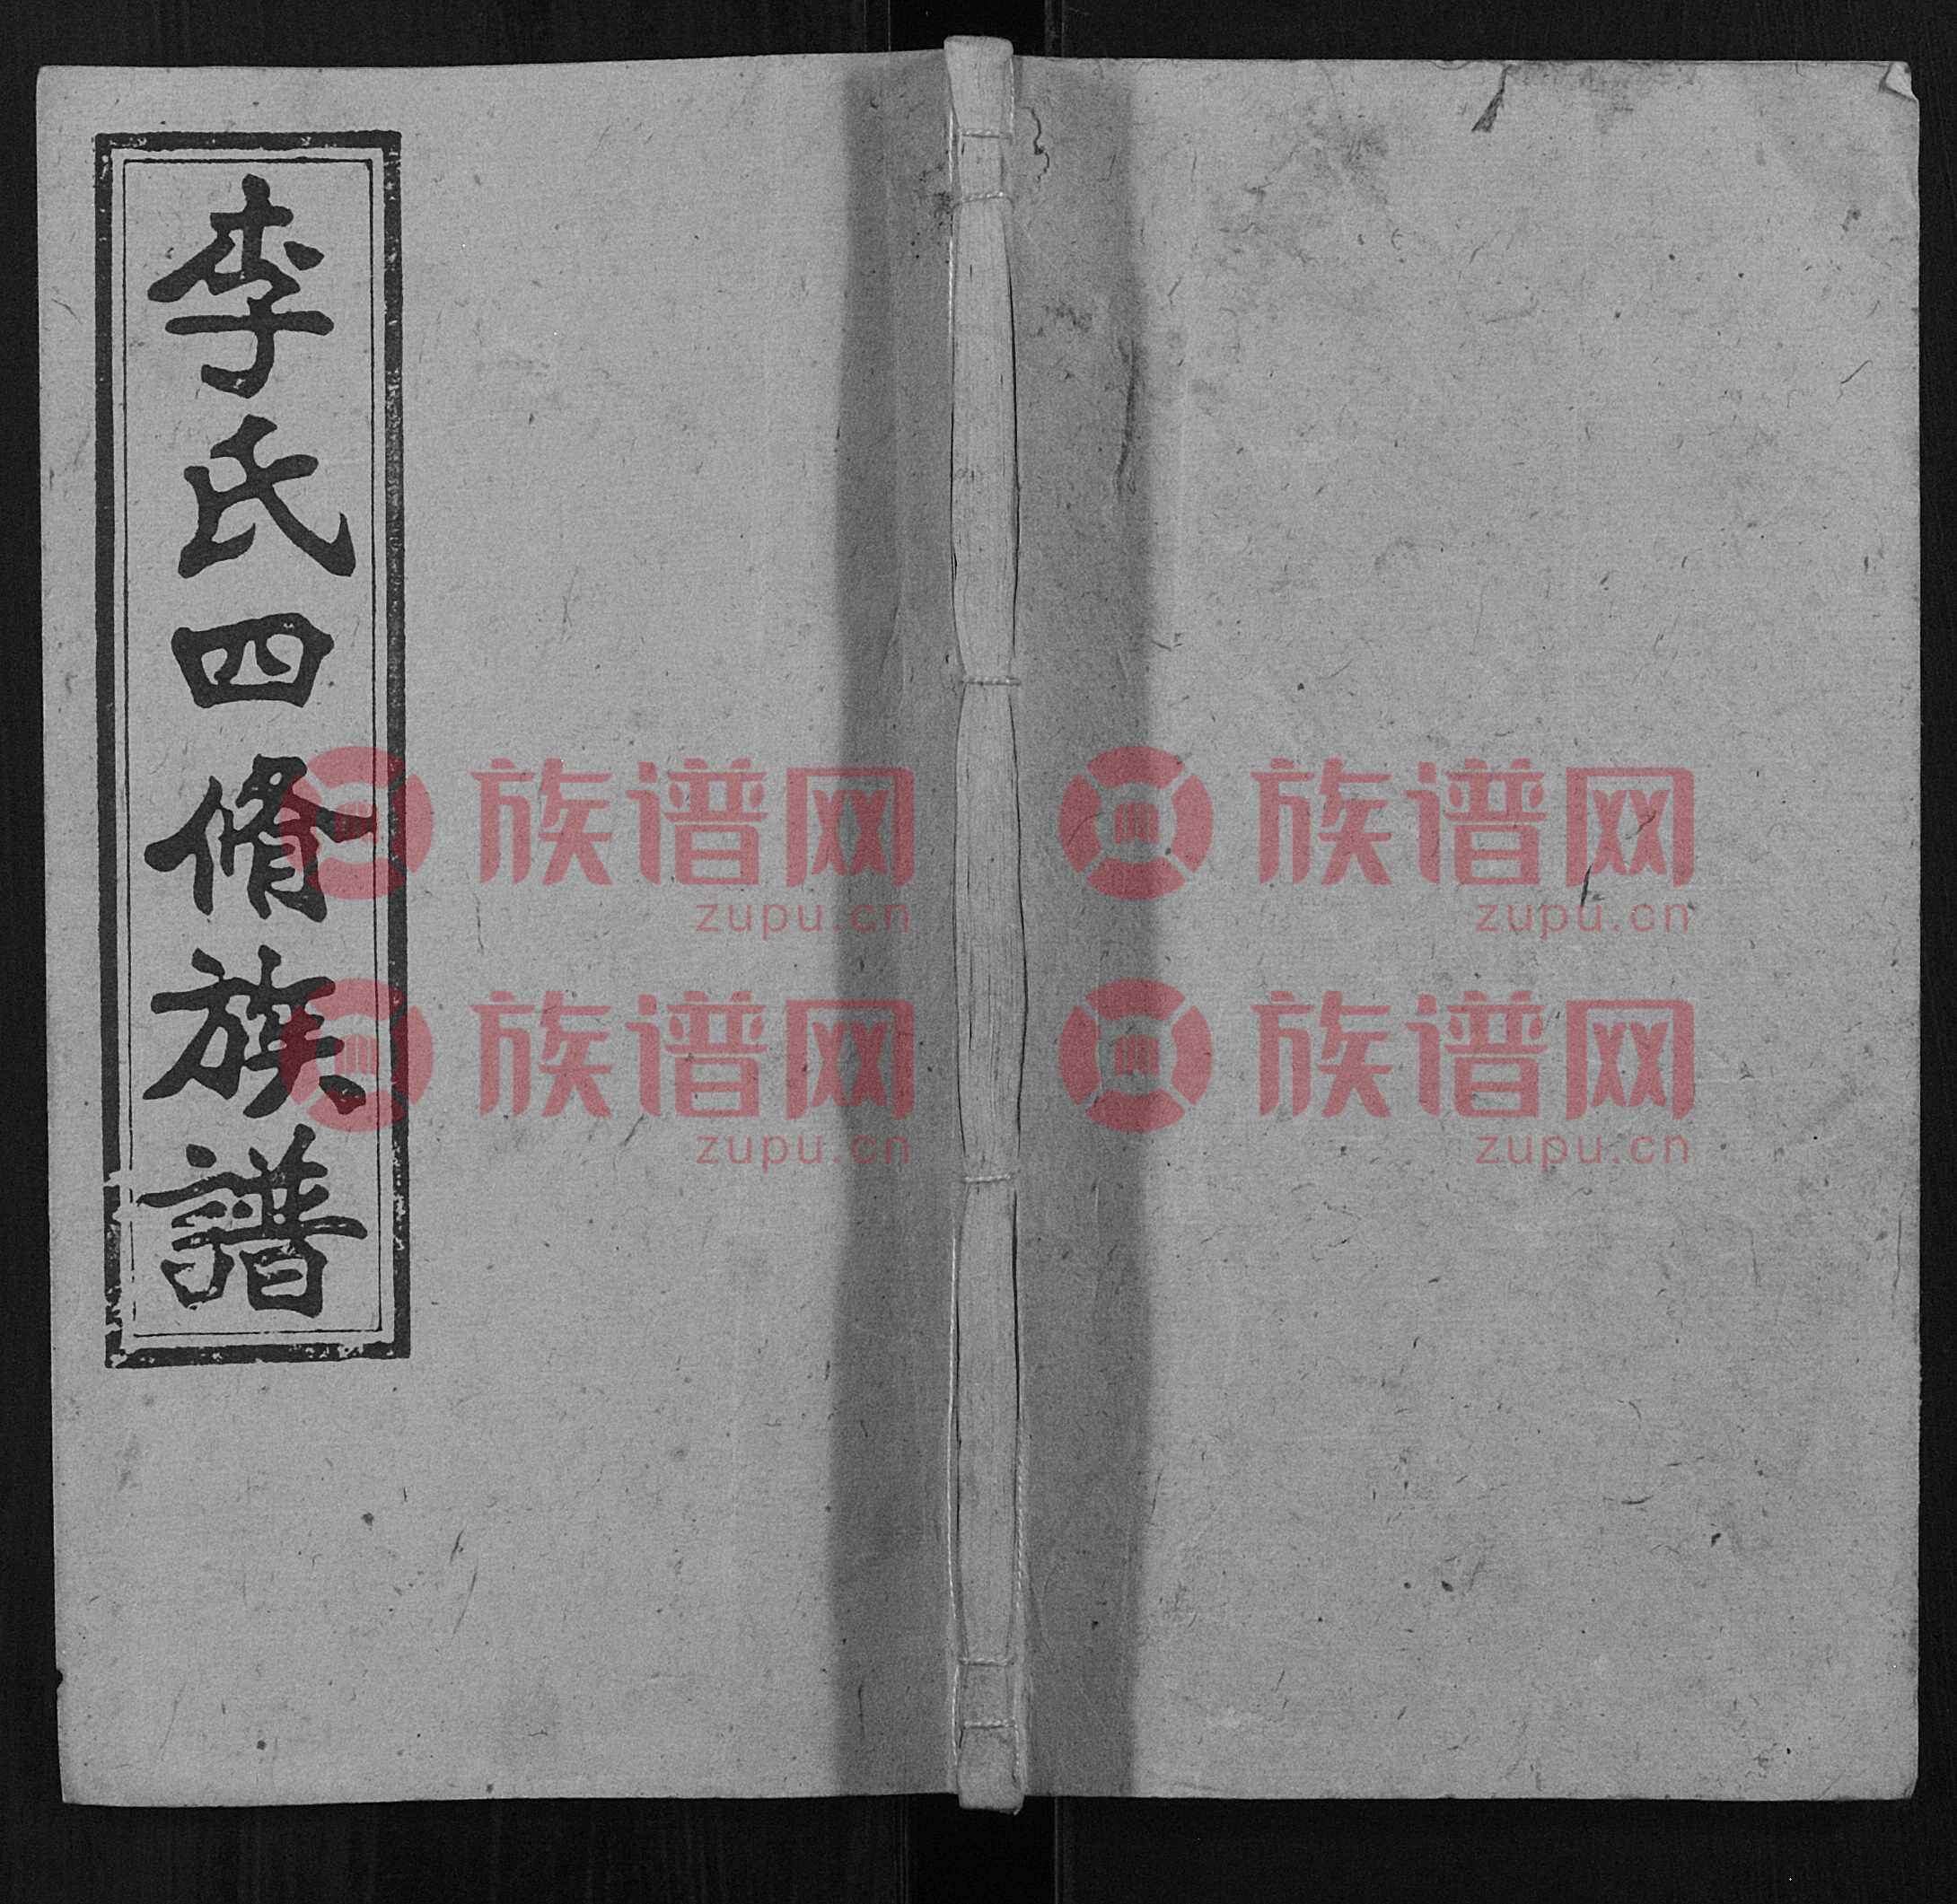 李氏四脩族譜
族谱网 族谱网
zupu.cn zupu.cn
族谱网 族谱网
zupu.cn zupu.cn